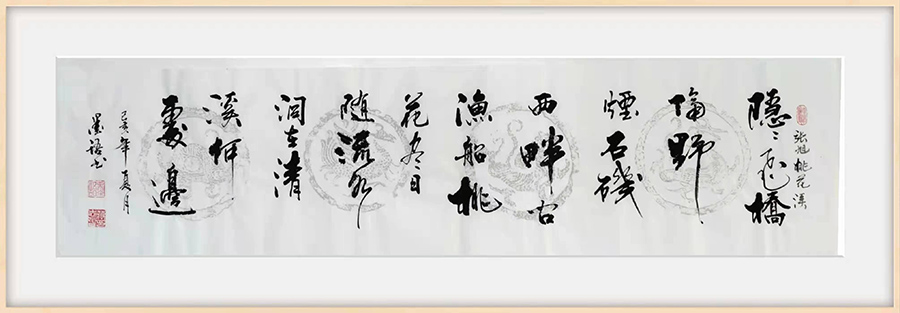 张旭桃花溪
隱〻飛橋
隔野
煙石磯
西畔问
漁船桃
花盡日
随流水
洞在清
溪何
處邊
己亥年夏月
墨语书